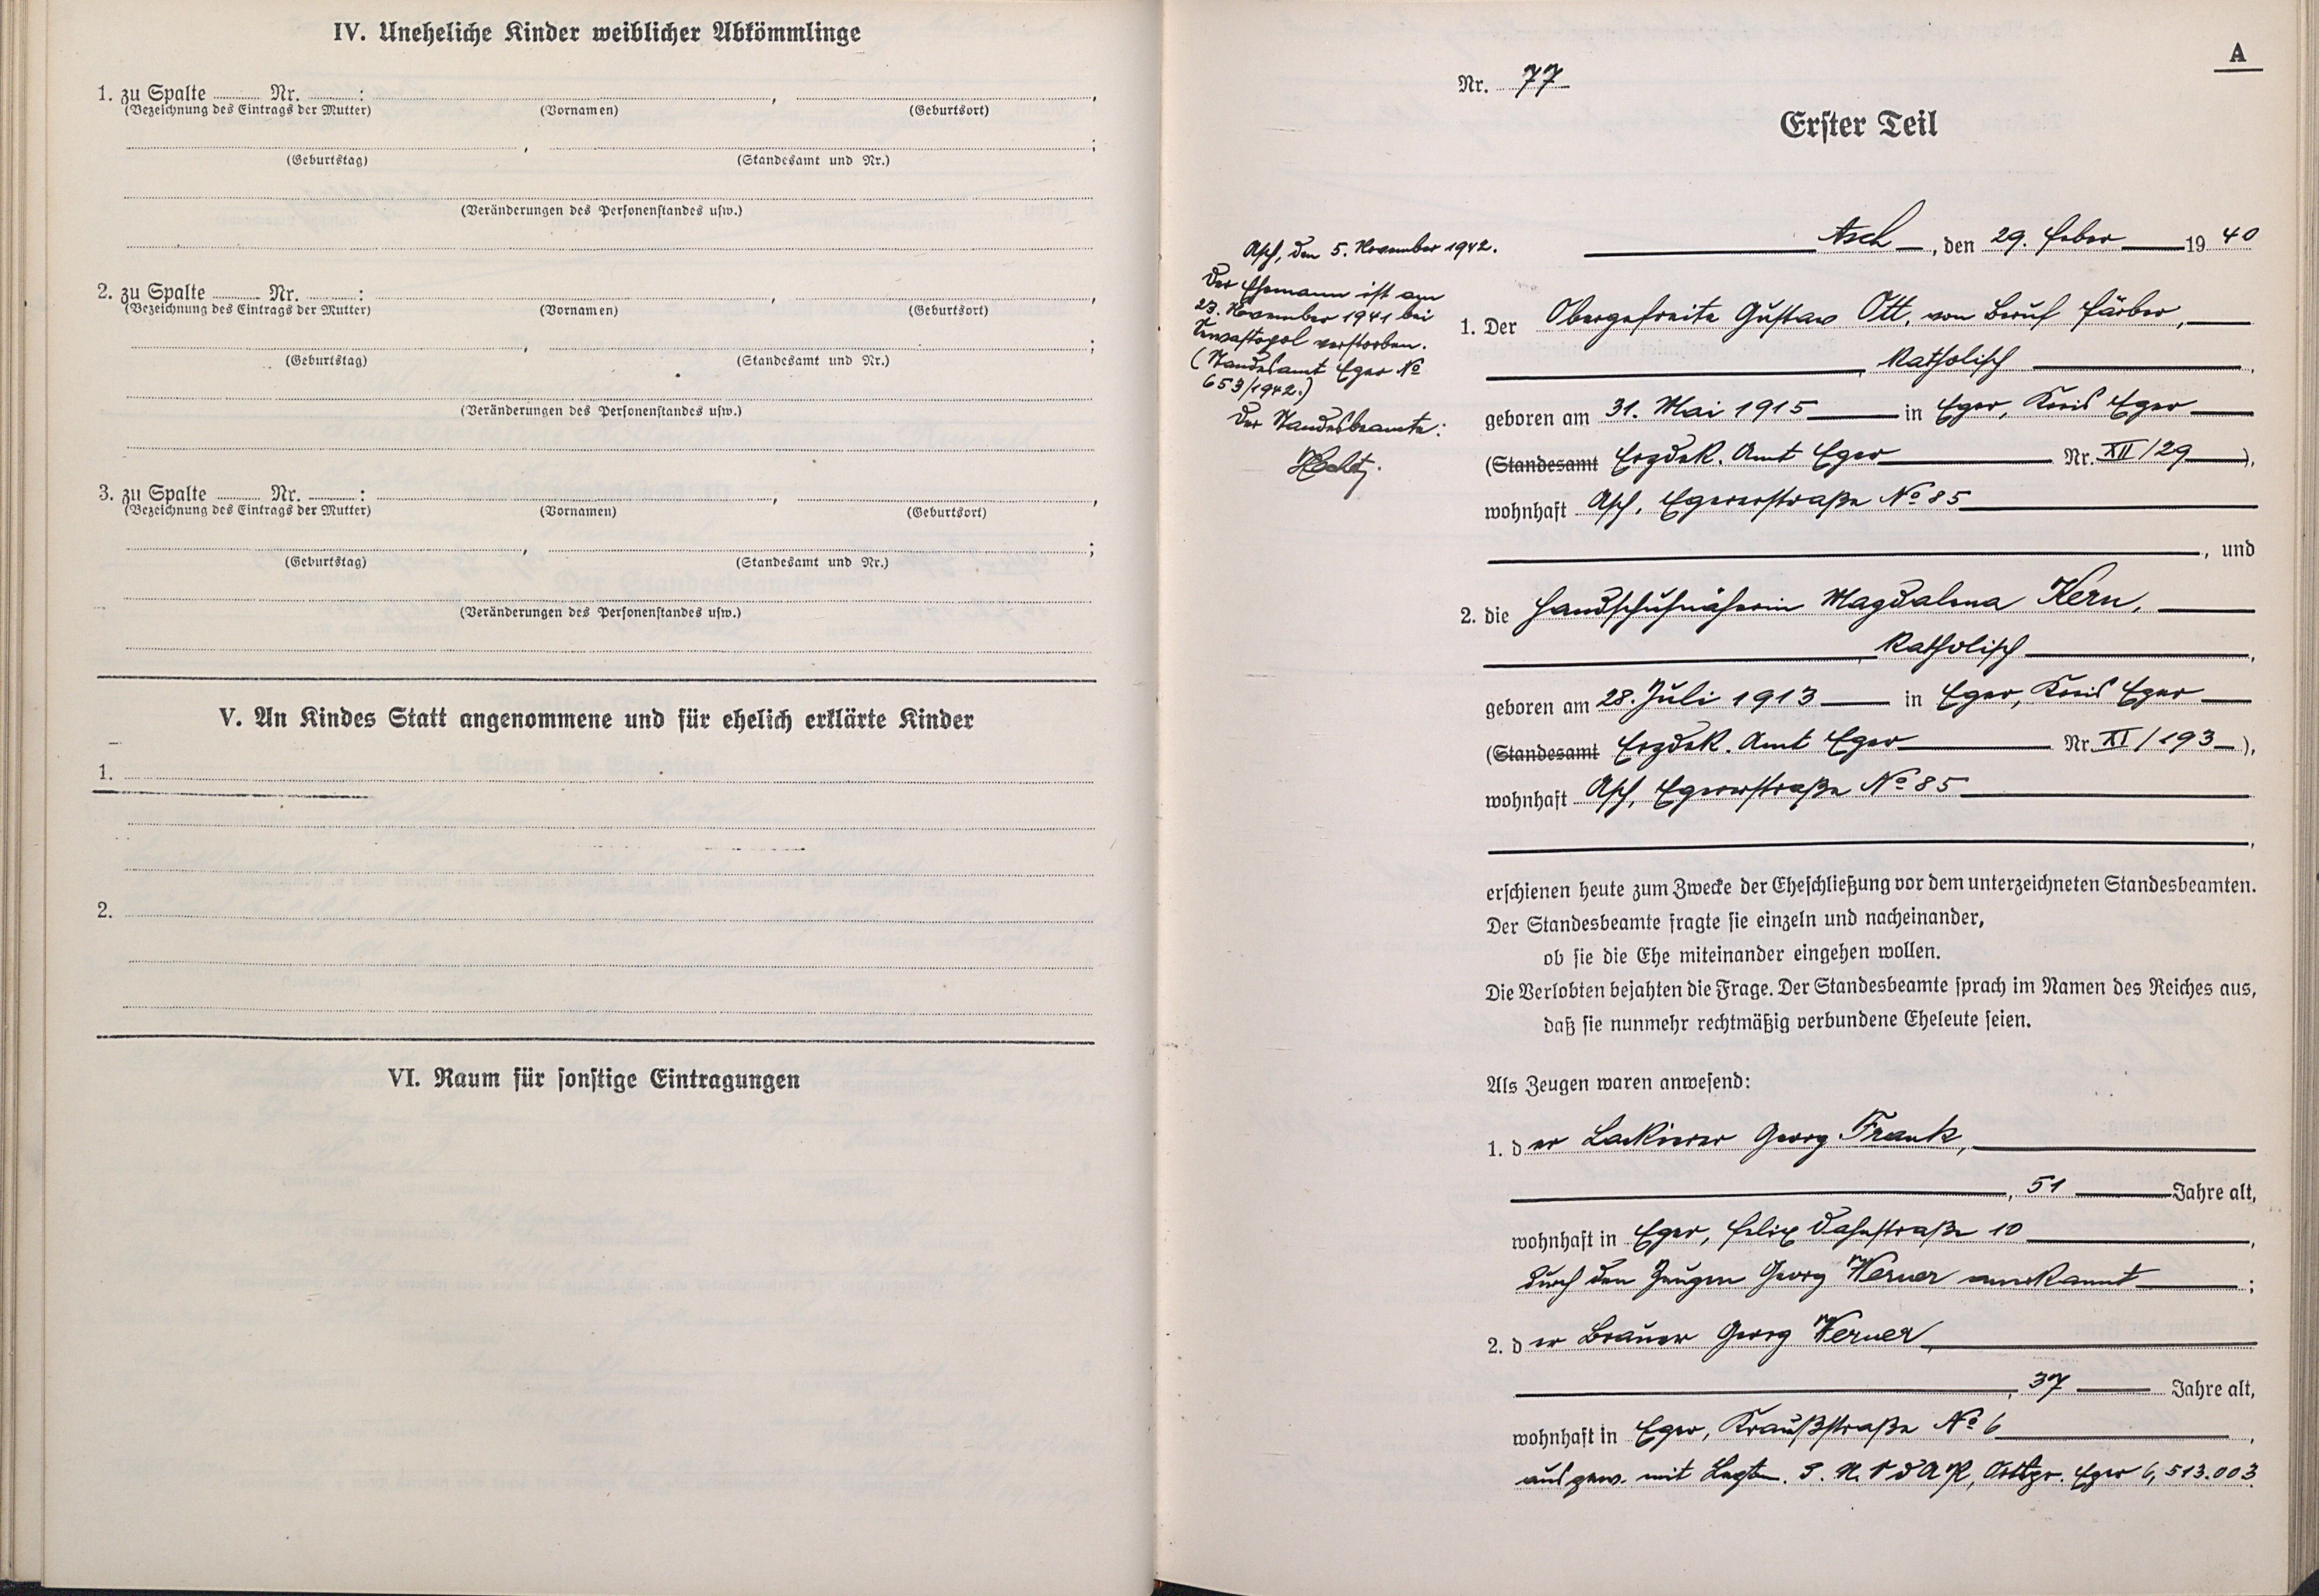 IV. Uneheliche Kinder weiblicher Abkömmlinge
1. zu Spalte ........ Nr. ........ : , ,
(Bezeichnung des Eintrags der Mutter) (Vornamen) (Geburtsort)
, ;
(Geburtstag) (Standesamt und Nr.)
(Veränderungen des Personenstandes usw.)
2. zu Spalte ........ Nr. ........ : , ,
(Bezeichnung des Eintrags der Mutter) (Vornamen) (Geburtsort)
, ;
(Geburtstag) (Standesamt und Nr.)
(Veränderungen des Personenstandes usw.)
3. zu Spalte ........ Nr. ........ : , ,
(Bezeichnung des Eintrags der Mutter) (Vornamen) (Geburtsort)
, ;
(Geburtstag) (Standesamt und Nr.)
(Veränderungen des Personenstandes usw.)
V. An Kindes Statt angenommene und für ehelich erklärte Kinder
1.
2.
VI. Raum für sonstige Eintragungen
A
Nr. 77
Erster Teil
Asch, den 29. Feber 1940
Asch, den 5. November 1942.
Der Ehemann ist am
23. November 1941 bei
Sewastopol verstorben.
(Standesamt Eger No
653/1942.)
Der Standesbeamte:
1. Der Obergefreite Gustav Ott, von Beruf Färber,
katholisch,
geboren am 31. Mai 1915 in Eger, Kreis Eger
(Standesamt Erzdek. Amt Eger Nr. XII/29),
wohnhaft Asch, Egererstraße No 85
, und
2. die Handschuhnäherin Magdalena Kern,
katholisch,
geboren am 28. Juli 1913 in Eger, Kreis Eger
(Standesamt Erzdek. Amt Eger Nr. XI/193),
wohnhaft Asch, Egererstraße No 85
,
erschienen heute zum Zwecke der Eheschließung vor dem unterzeichneten Standesbeamten.
Der Standesbeamte fragte sie einzeln und nacheinander,
ob sie die Ehe miteinander eingehen wollen.
Die Verlobten bejahten die Frage. Der Standesbeamte sprach im Namen des Reiches aus,
daß sie nunmehr rechtmäßig verbundene Eheleute seien.
Als Zeugen waren anwesend:
1. der Lackierer Georg Frank,
, 51 Jahre alt,
wohnhaft in Eger, Felix Dahnstraße 10,
durch den Zeugen Georg Werner anerkannt;
2. der Brauer Georg Werner,
, 37 Jahre alt,
wohnhaft in Eger, Kraußstraße No 6,
ausgew. mit Legtm. d. N.S.D.A.P., Ortsgr. Eger 6,513.003